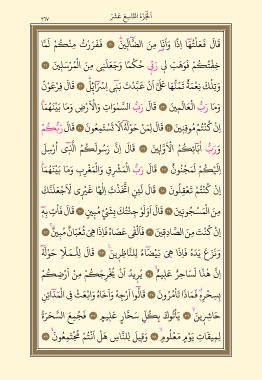 الجزء التاسع عشر
٣٦٧
قَالَ فَعَلْتُهَا إِذًا وَأَنَا۬ مِنَ الضَّٓالّ۪ينَۜ ﴿٢٠﴾ فَفَرَرْتُ مِنْكُمْ لَمَّا
خِفْتُكُمْ فَوَهَبَ ل۪ي رَبّ۪ي حُكْمًا وَجَعَلَن۪ي مِنَ الْمُرْسَل۪ينَ ﴿٢١﴾
وَتِلْكَ نِعْمَةٌ تَمُنُّهَا عَلَيَّ أَنْ عَبَّدْتَ بَن۪ٓي اِسْرَٓائ۪لَۜ ﴿٢٢﴾ قَالَ فِرْعَوْنُ
وَمَا رَبُّ الْعَالَم۪ينَ ﴿٢٣﴾ قَالَ رَبُّ السَّمٰوَاتِ وَالْاَرْضِ وَمَا بَيْنَهُمَاۜ
اِنْ كُنْتُمْ مُوقِن۪ينَ ﴿٢٤﴾ قَالَ لِمَنْ حَوْلَهُٓ اَلَا تَسْتَمِعُونَ ﴿٢٥﴾ قَالَ رَبُّكُمْ
وَرَبُّ اٰبَٓائِكُمُ الْاَوَّل۪ينَ ﴿٢٦﴾ قَالَ اِنَّ رَسُولَكُمُ الَّذ۪ٓي اُرْسِلَ
اِلَيْكُمْ لَمَجْنُونٌ ﴿٢٧﴾ قَالَ رَبُّ الْمَشْرِقِ وَالْمَغْرِبِ وَمَا بَيْنَهُمَاۜ
اِنْ كُنْتُمْ تَعْقِلُونَ ﴿٢٨﴾ قَالَ لَئِنِ اتَّخَذْتَ اِلٰهًا غَيْر۪ي لَاَجْعَلَنَّكَ
مِنَ الْمَسْجُون۪ينَ ﴿٢٩﴾ قَالَ اَوَلَوْ جِئْتُكَ بِشَيْءٍ مُب۪ينٍ ﴿٣٠﴾ قَالَ فَأْتِ بِه۪ٓ
اِنْ كُنْتَ مِنَ الصَّادِق۪ينَ ﴿٣١﴾ فَاَلْقٰى عَصَاهُ فَاِذَا هِيَ ثُعْبَانٌ مُب۪ينٌۚ ﴿٣٢﴾
وَنَزَعَ يَدَهُ فَاِذَا هِيَ بَيْضَٓاءُ لِلنَّاظِر۪ينَ۟ ﴿٣٣﴾ قَالَ لِلْمَلَأِ حَوْلَهُٓ
اِنَّ هٰذَا لَسَاحِرٌ عَل۪يمٌۙ ﴿٣٤﴾ يُر۪يدُ اَنْ يُخْرِجَكُمْ مِنْ اَرْضِكُمْ
بِسِحْرِه۪ۗ فَمَاذَا تَأْمُرُونَ ﴿٣٥﴾ قَالُٓوا اَرْجِهْ وَاَخَاهُ وَابْعَثْ فِي الْمَدَٓائِنِ
حَاشِر۪ينَۙ ﴿٣٦﴾ يَأْتُوكَ بِكُلِّ سَحَّارٍ عَل۪يمٍ ﴿٣٧﴾ فَجُمِعَ السَّحَرَةُ
لِم۪يقَاتِ يَوْمٍ مَعْلُومٍۙ ﴿٣٨﴾ وَق۪يلَ لِلنَّاسِ هَلْ اَنْتُمْ مُجْتَمِعُونَۙ ﴿٣٩﴾